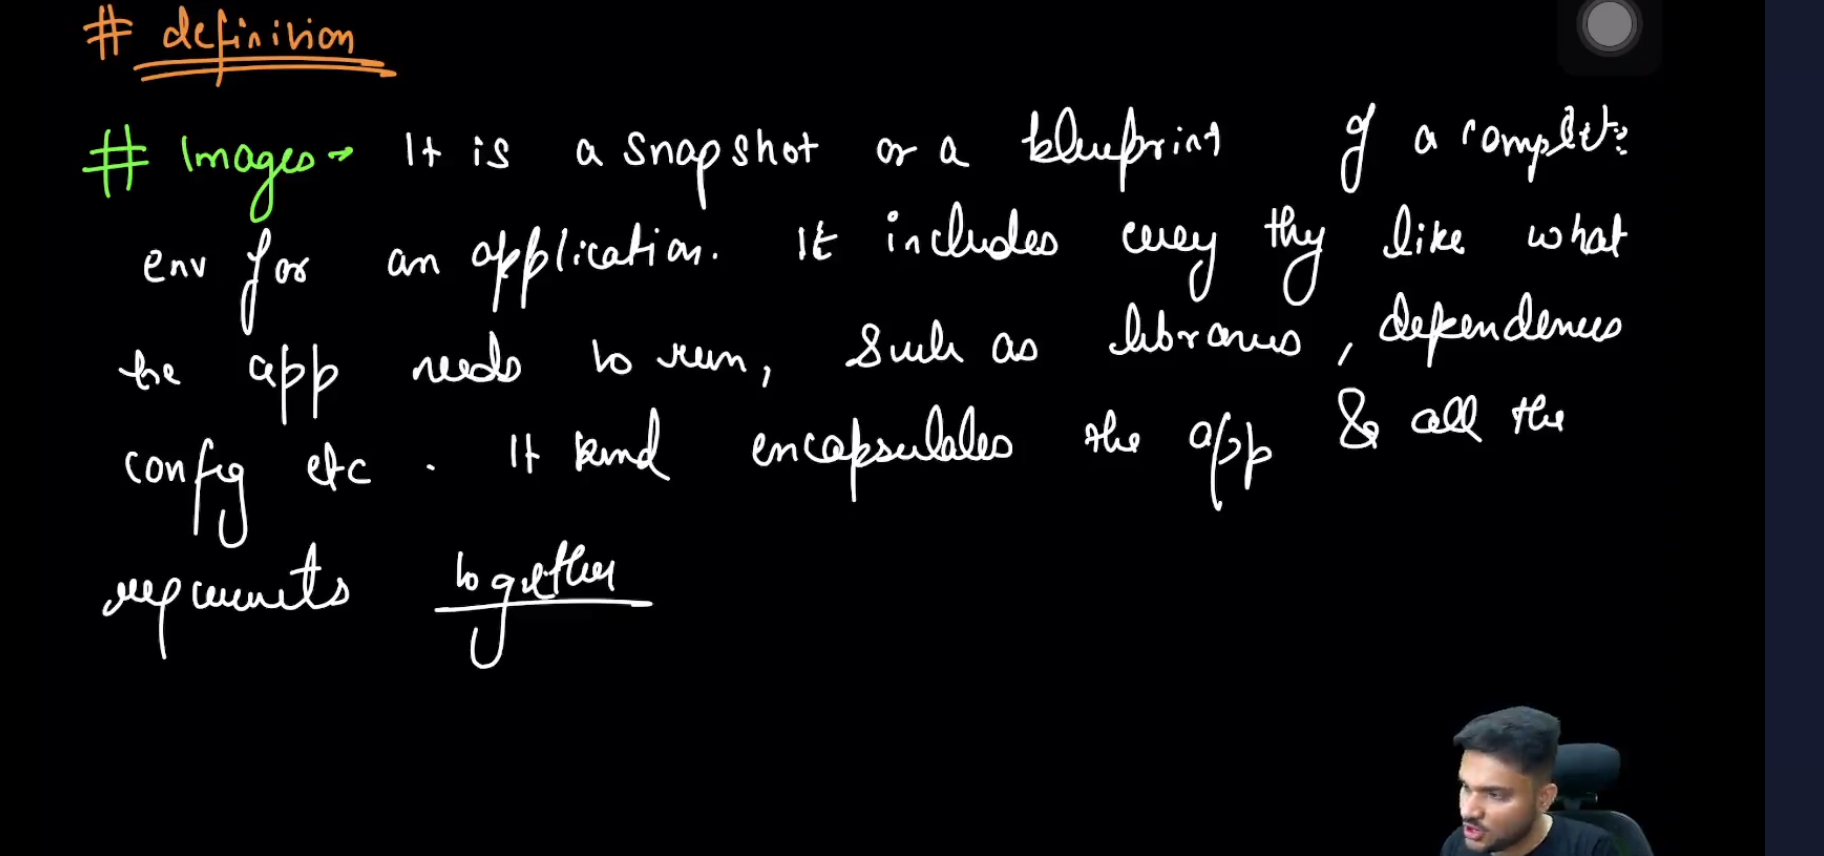 # definition
# Images → It is a snapshot or a blueprint of a complete
env for an application. It includes every thg like what
the app needs to run, such as libraries, dependences
config etc. It kind encapsulates the app & all the
together